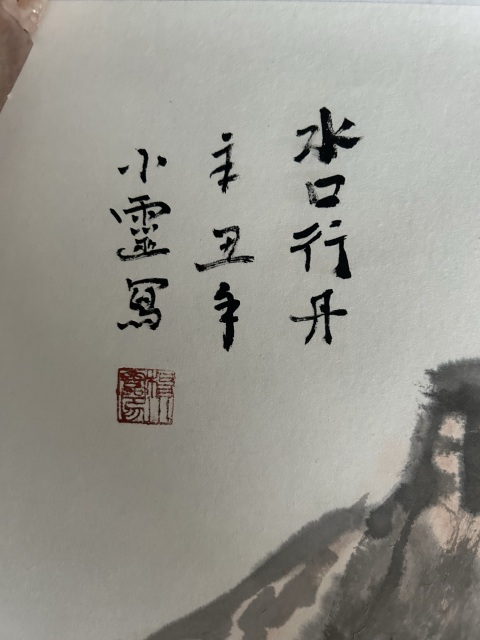 水口行丹
辛丑年
小靈寫